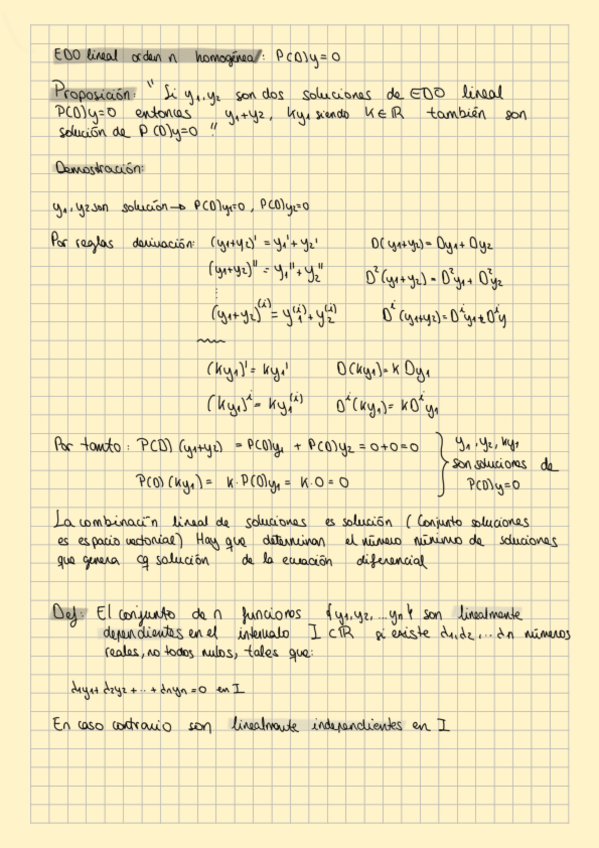 EDO lineal orden n homogénea: P(D)y=0
Proposición: " Si y₁, y₂ son dos soluciones de EDO lineal
P(D)y=0 entonces y₁+y₂, ky₁ siendo K∈ℝ también son
solución de P(D)y=0 "
Demostración:
y₁, y₂ son solución → P(D)y₁=0, P(D)y₂=0
Por reglas derivación: (y₁+y₂)' = y₁'+y₂' D(y₁+y₂) = Dy₁ + Dy₂
(y₁+y₂)'' = y₁''+y₂'' D²(y₁+y₂) = D²y₁ + D²y₂
⋮
(y₁+y₂)⁽ⁱ⁾ = y₁⁽ⁱ⁾ + y₂⁽ⁱ⁾ Dⁱ(y₁+y₂) = Dⁱy₁ + Dⁱy
(ky₁)' = ky₁' D(ky₁) = K Dy₁
(ky₁)ⁱ = ky₁⁽ⁱ⁾ Dⁱ(ky₁) = KDⁱy₁
Por tanto: P(D)(y₁+y₂) = P(D)y₁ + P(D)y₂ = 0+0=0 } y₁, y₂, ky₁
son soluciones de
P(D)(ky₁) = K·P(D)y₁ = K·0 = 0 P(D)y=0
La combinación lineal de soluciones es solución (Conjunto soluciones
es espacio vectorial) Hay que determinar el número mínimo de soluciones
que genera cq solución de la ecuación diferencial
Def: El conjunto de n funciones {y₁, y₂, ... yₙ} son linealmente
dependientes en el intervalo I⊂ℝ si existe d₁, d₂, ... dₙ números
reales, no todos nulos, tales que:
d₁y₁+ d₂y₂ + ... + dₙyₙ = 0 en I
En caso contrario son linealmente independientes en I